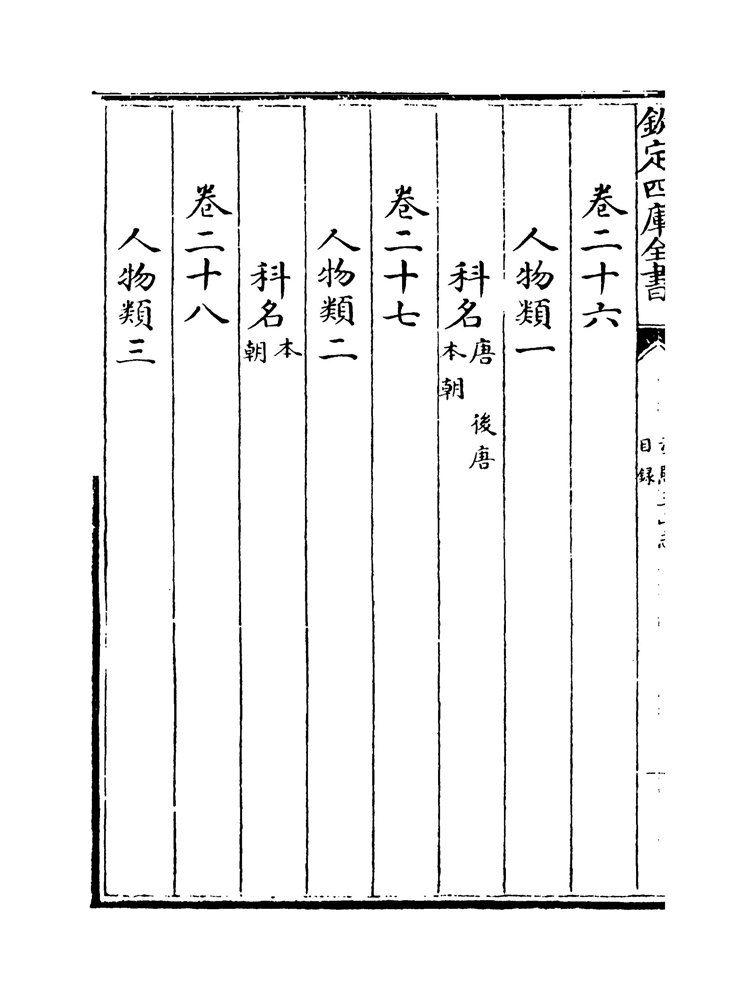 欽定四庫全書
目録
卷二十六
人物類一
科名唐 後唐
本朝
卷二十七
人物類二
科名本
朝
卷二十八
人物類三